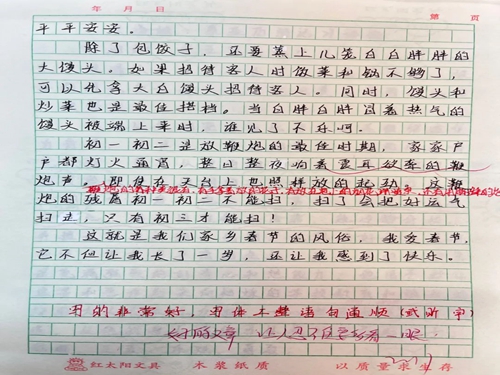 年 月 日 第 页
平平安安。
除了包饺子，还要蒸上几笼白白胖胖的
大馒头。如果招待客人时做菜和饭不够了，
可以包含大白馒头招待客人。同时，馒头和
炒菜也是最佳搭档。当白胖白胖冒着热气的
馒头被端上来时，谁见了不乐啊。
初一初二是放鞭炮的最佳时期，家家户
户都灯火通宵，整日整夜响着震耳欲聋的鞭
炮声，即使在天台上也照样放的起劲，这鞭
炮的残属初一初二不能扫，扫了会把好运气
扫走，只有初三才能扫！
这就是我们家乡春节的风俗，我爱春节，
它不但让我长了一岁，还让我感到了快乐。
写的非常好，语句通顺
好的文章 让人忍不住 看一眼
红太阳文具 木浆纸质 以质量求生存